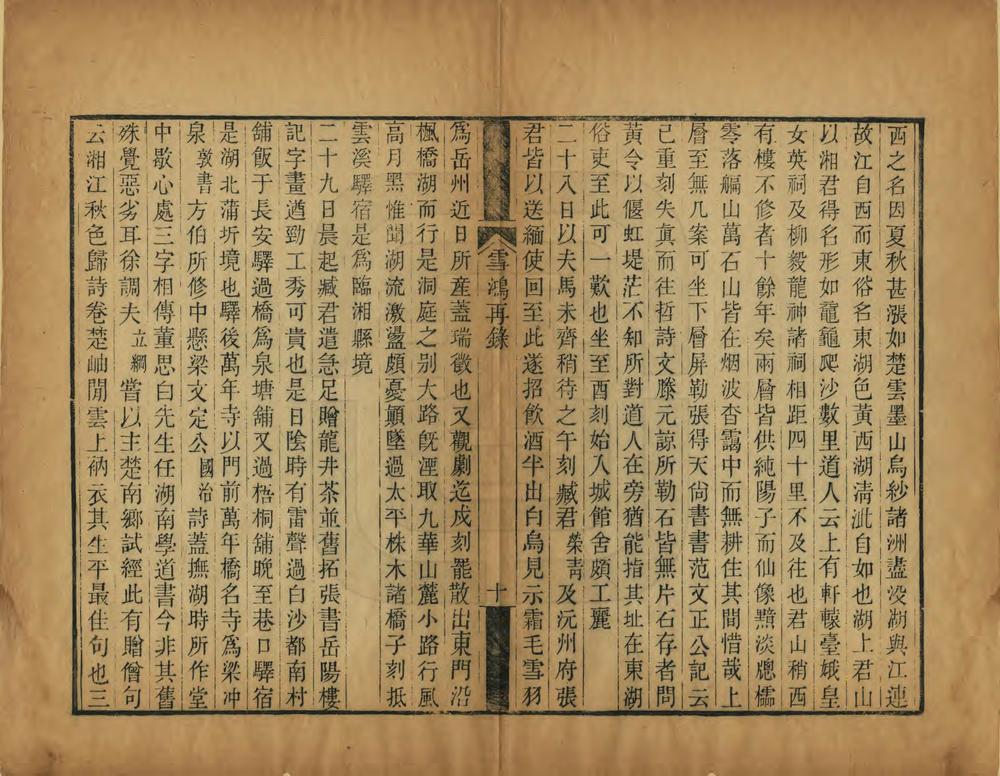 西之名因夏秋甚漲如楚雲墨山烏紗諸洲盡沒湖與江連
故江自西而東俗名東湖色黃西湖淸泚自如也湖上君山
以湘君得名形如龍龜爬沙數里道人云上有軒轅臺娥皇
女英祠及柳毅龍神諸祠相距四十里不及往也君山稍西
有樓不修者十餘年矣兩層皆供純陽子而仙像黯淡牕櫺
零落艑山萬石山皆在烟波杳靄中而無耕住其間惜哉上
層至無几案可坐下層屏勒張得天尙書書范文正公記云
已重刻失眞而往哲詩文滕元諒所勒石皆無片石存者問
黃令以偃虹堤茫不知所對道人在旁猶能指其址在東湖
俗吏至此可一歎也坐至酉刻始入城館舍頗工麗
二十八日以夫馬未齊稍待之午刻臧君榮靑及沅州府張
君皆以送緬使回至此遂招飮酒半出白烏見示霜毛雪羽
雪鴻再錄
十
爲岳州近日所產蓋瑞徵也又觀劇迄戍刻罷散出東門沿
楓橋湖而行是洞庭之别大路旣湮取九華山麓小路行風
高月黑惟聞湖流激盪頗憂顚墜過太平株木諸橋子刻抵
雲溪驛宿是爲臨湘縣境
二十九日晨起臧君遣急足贈龍井茶並舊拓張書岳陽樓
記字畫遒勁工秀可貴也是日陰時有雷聲過白沙都南村
舖飯于長安驛過橋爲泉塘舖又過梧桐舖晚至巷口驛宿
是湖北蒲圻境也驛後萬年寺以門前萬年橋名寺爲梁冲
泉敦書方伯所修中懸梁文定公國治詩蓋撫湖時所作堂
中歇心處三字相傳董思白先生任湖南學道書今非其舊
殊覺惡劣耳徐調夫立綱嘗以主楚南鄉試經此有贈僧句
云湘江秋色歸詩卷楚岫閒雲上衲衣其生平最佳句也三